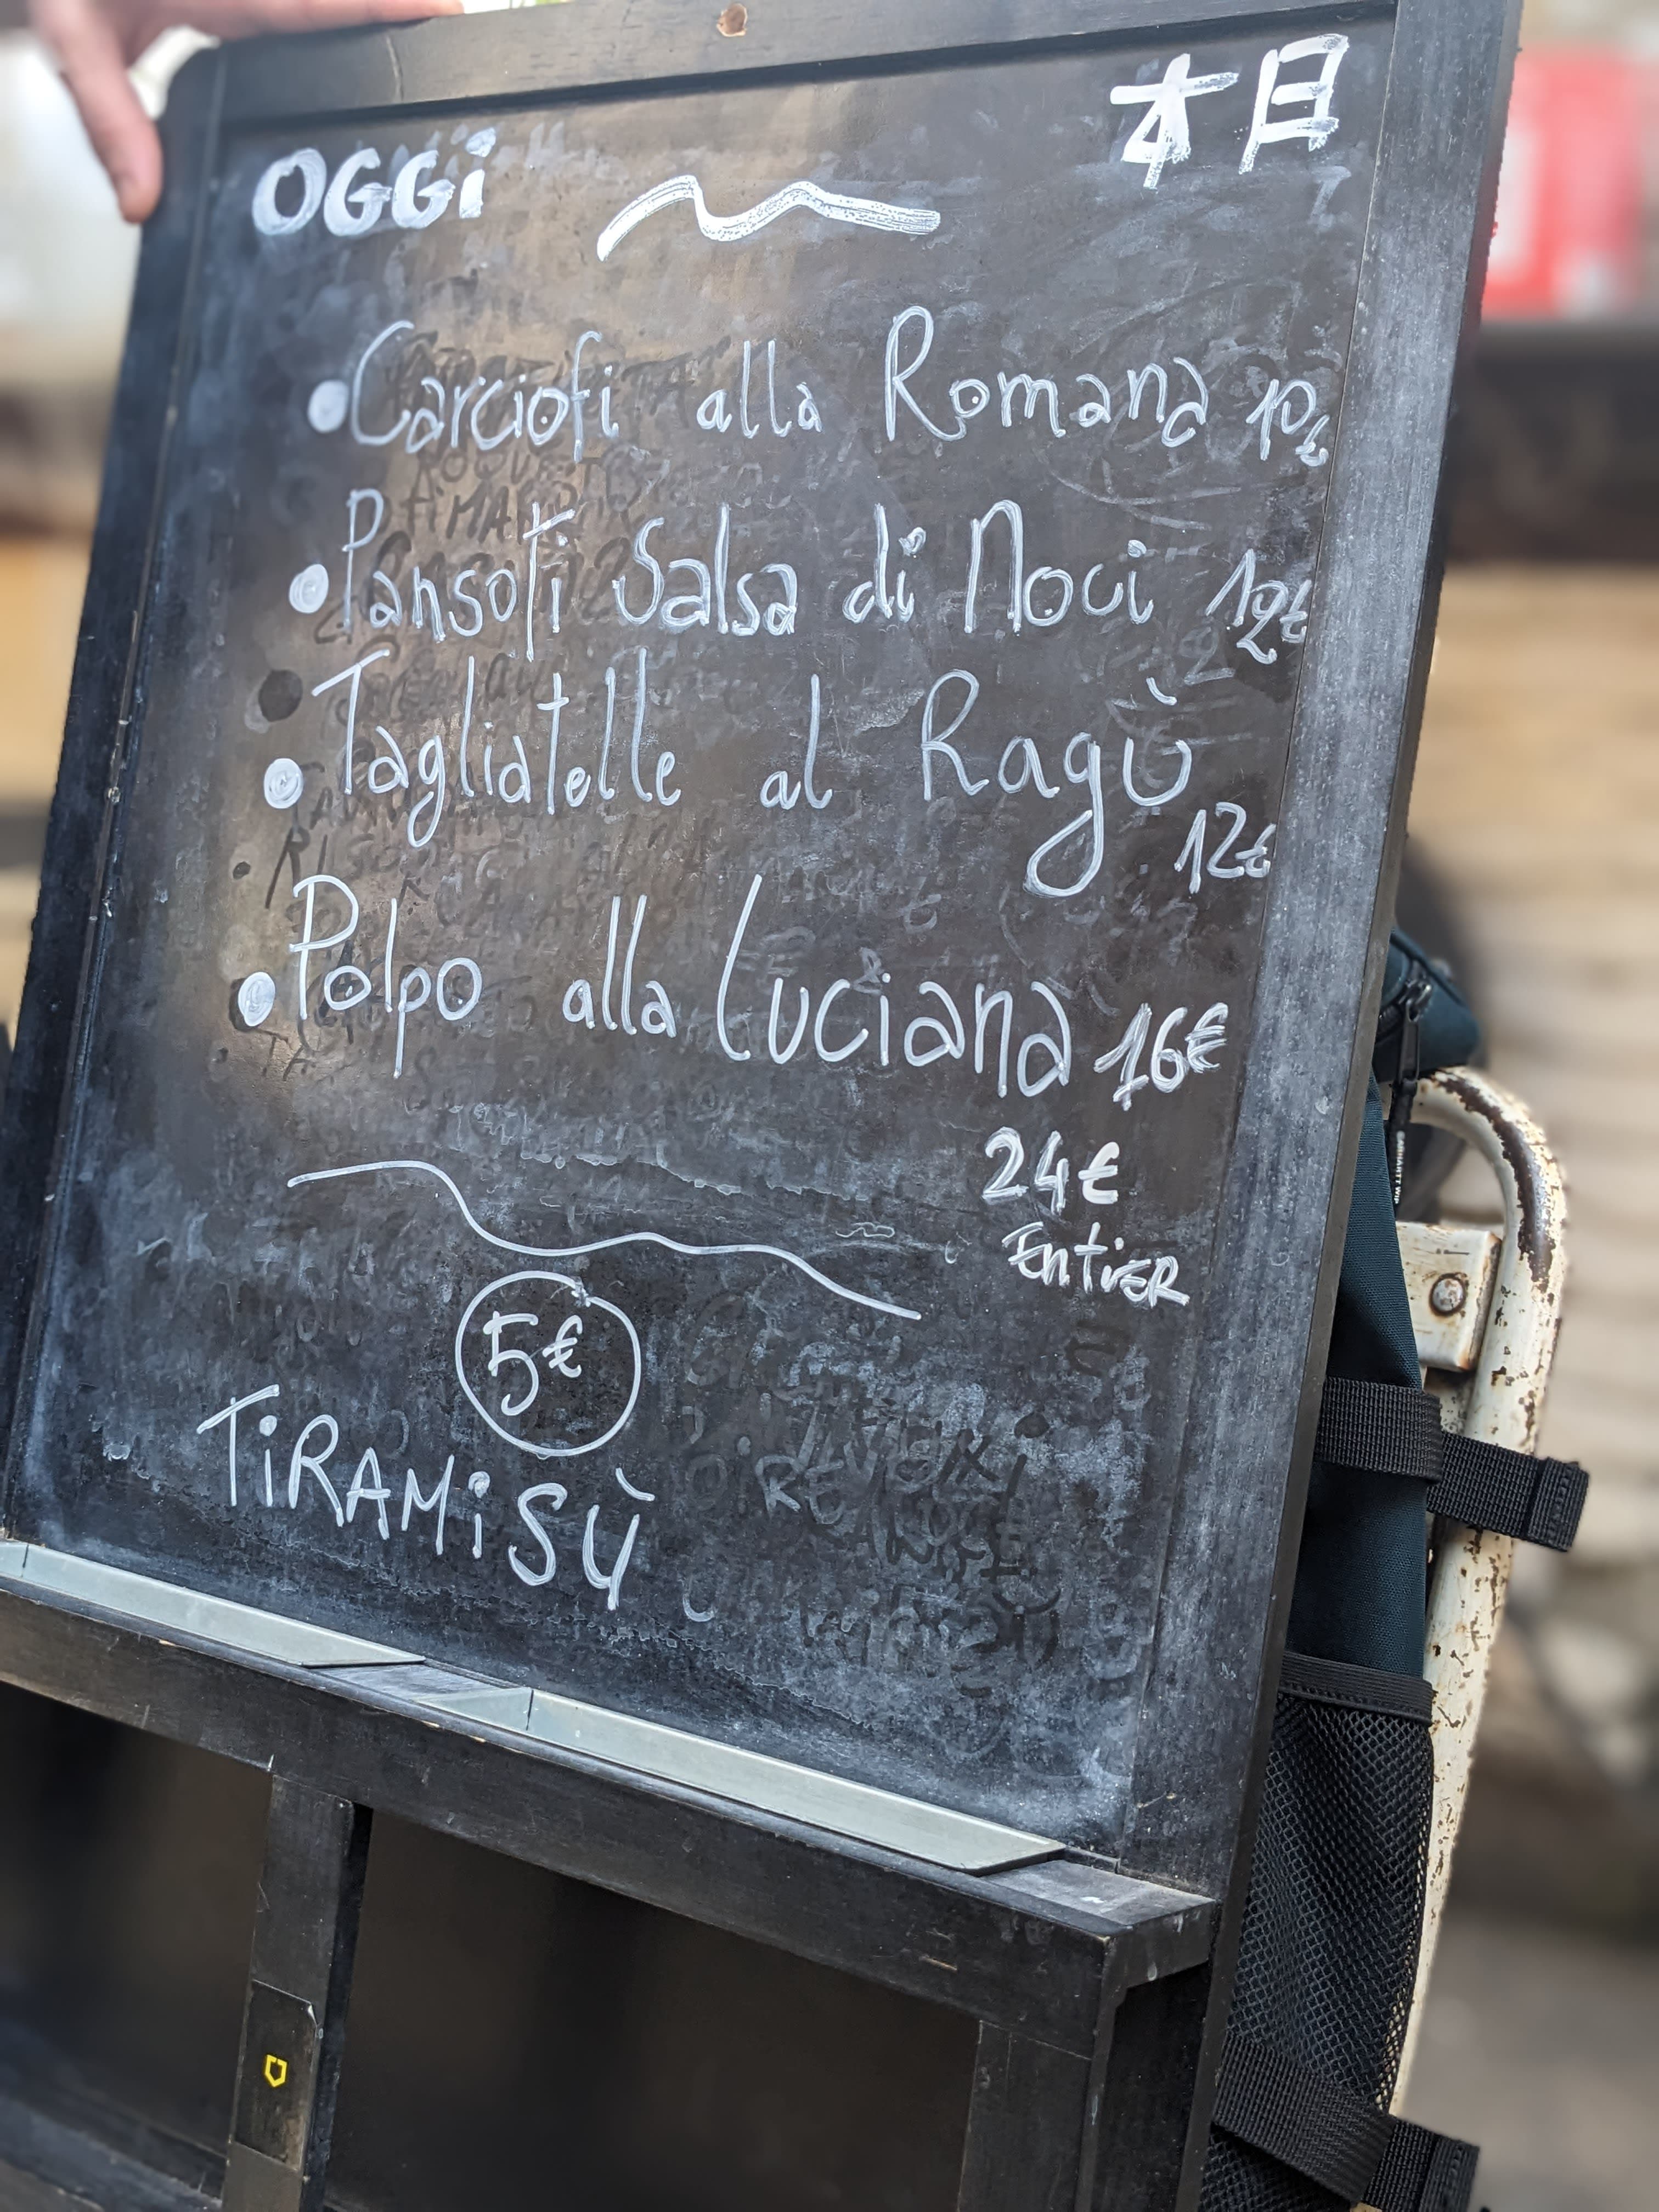 OGGi 本日
•Carciofi alla Romana 10€
•Pansoti Salsa di Noci 12€
•Tagliatelle al Ragù
12€
•Polpo alla Luciana 16€
24€
EntiER
5€
TiRAMiSÙ
CARHARTT WIP